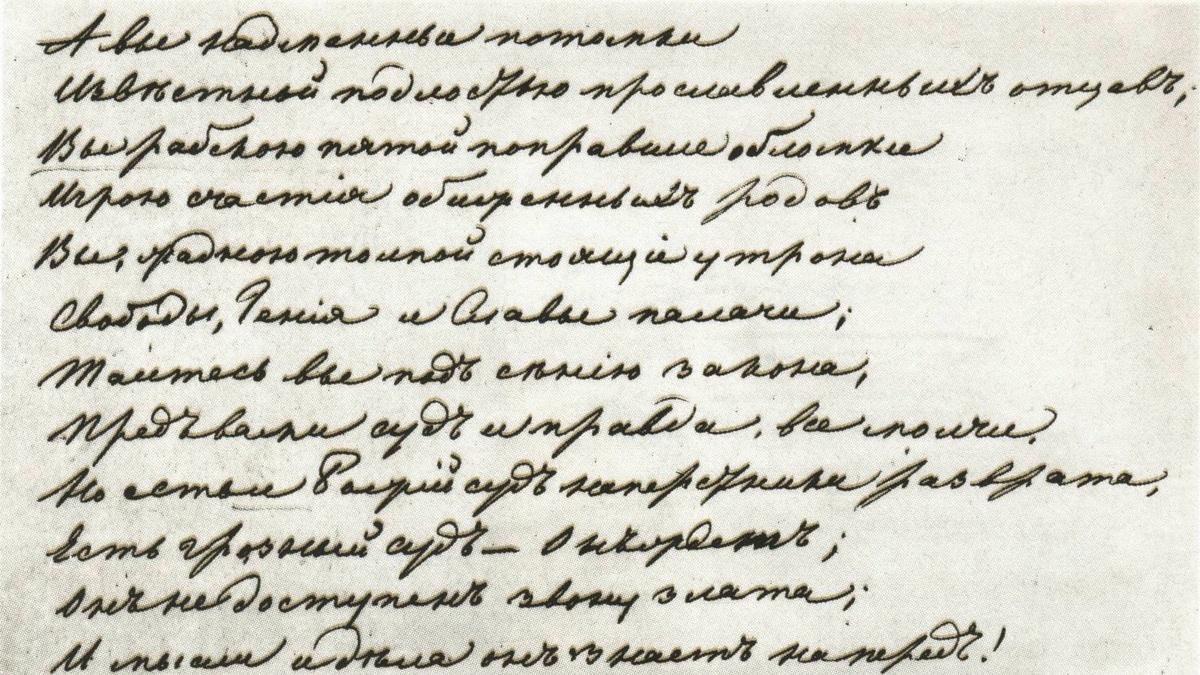 А вы надменные потомки
Извѣстной подлостью прославленныхъ отцевъ,
Вы рабскою пятой поправшіе обломки
Игрою счастія обиженныхъ родовъ
Вы, жадною толпой стоящіе у трона
Свободы, Генія и Славы палачи;
Таитесь вы подъ сѣнію закона,
Предъ вами судъ и правда, все молчи,
Но есть и Божій судъ наперстники разврата,
Есть грозный судъ — Онъ ждетъ;
Онъ не доступенъ звону злата;
И мысли и дѣла онъ знаетъ напередъ!